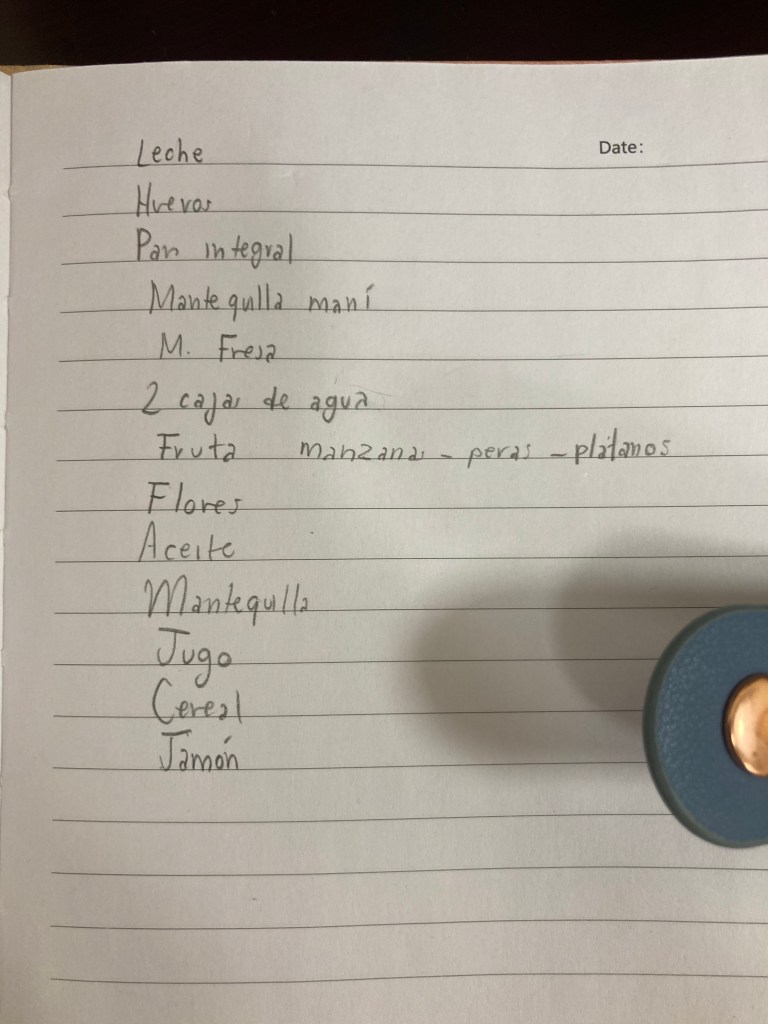 Date:
Leche
Huevos
Pan integral
Mantequilla maní
M. Fresa
2 cajas de agua
Fruta manzanas - peras - plátanos
Flores
Aceite
Mantequilla
Jugo
Cereal
Jamón